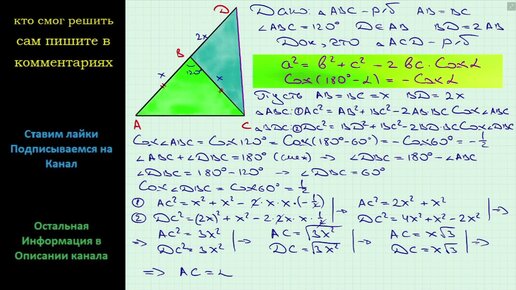 кто смог решить
сам пишите в
комментариях
Ставим лайки
Подписываемся на
Канал
Остальная
Информация в
Описании канала
D
2x
B
120°
x
x
A
C
Дано: △ABC - р/б AB = BC
∠ABC = 120° D∈AB BD = 2AB
Док, что △ACD - р/б
a² = b² + c² - 2bc·Cosα
Cos(180°-α) = -Cosα
Пусть AB = BC = x BD = 2x
△ABC: ① AC² = AB² + BC² - 2AB·BC Cos∠ABC
△BDC: ② DC² = BD² + BC² - 2BD·BC Cos∠DBC
Cos∠ABC = Cos120° = Cos(180°-60°) = -Cos60° = -1/2
∠ABC + ∠DBC = 180° (смеж) → ∠DBC = 180° - ∠ABC
∠DBC = 180° - 120° → ∠DBC = 60°
Cos∠DBC = Cos60° = 1/2
① AC² = x² + x² - 2·x·x·(-1/2) |→ AC² = 2x² + x² |→
② DC² = (2x)² + x² - 2·2x·x·1/2 |→ DC² = 4x² + x² - 2x² |→
⇒ AC² = 3x² |→ AC = √3x² |→ AC = x√3 |→
DC² = 3x² |→ DC = √3x² |→ DC = x√3 |→
⇒ AC = L